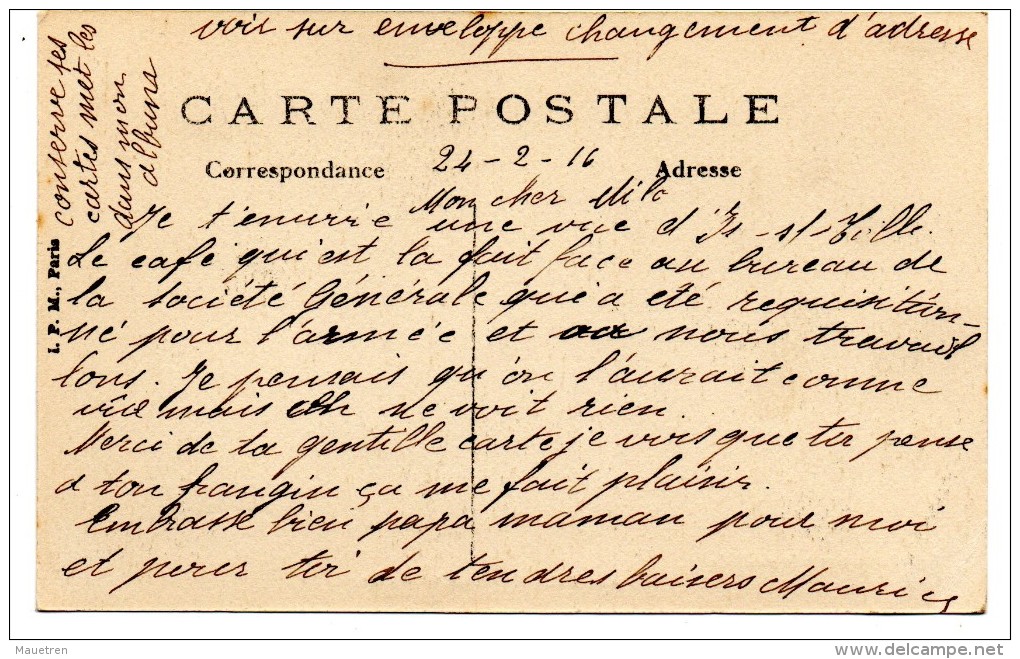 voir sur enveloppe changement d'adresse
conserve tes
cartes met les
dans mon
album
CARTE POSTALE
Correspondance
24-2-16
Adresse
Mon cher Milo
Je t'envoie une vue d'Is-s/-Tille.
Le café qui est la fait face au bureau de
la société Générale qui a été requisition-
né pour l'armée et où nous travail
lons. Je pensais qu'on l'aurait comme
vue mais on ne voit rien.
Merci de ta gentille carte je vois que tu pense
a ton frangin ça me fait plaisir.
Embrasse bien papa maman pour moi
et pour toi de tendres baisers Maurice
I. P. M., Paris
Mauetren
delcampe.net